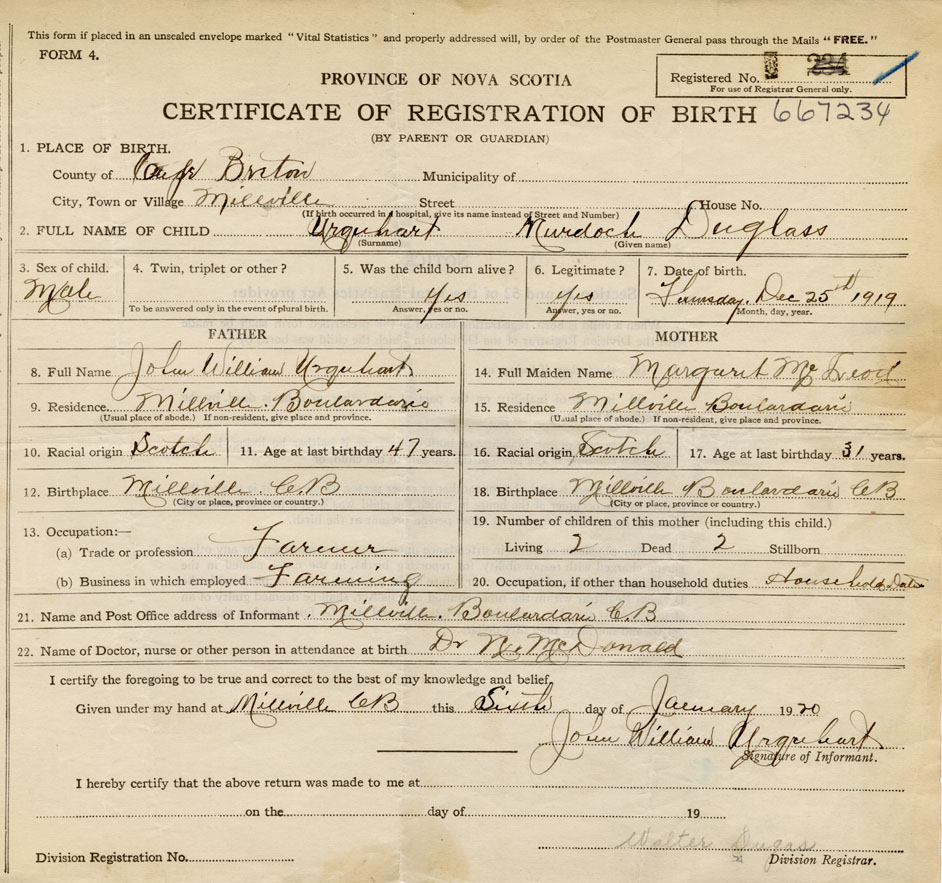 This form if placed in an unsealed envelope marked "Vital Statistics" and properly addressed will, by order of the Postmaster General pass through the Mails "FREE."
FORM 4.
Registered No. 234
For use of Registrar General only.
PROVINCE OF NOVA SCOTIA
CERTIFICATE OF REGISTRATION OF BIRTH 667234
(BY PARENT OR GUARDIAN)
1. PLACE OF BIRTH.
County of Cape Breton Municipality of
City, Town or Village Millville Street House No.
(If birth occurred in hospital, give its name instead of Street and Number)
2. FULL NAME OF CHILD Urquhart Murdoch Duglass
(Surname) (Given name)
3. Sex of child. 4. Twin, triplet or other? 5. Was the child born alive? 6. Legitimate? 7. Date of birth.
Male Yes Yes Thursday, Dec 25th 1919
To be answered only in the event of plural birth. Answer, yes or no. Answer, yes or no. Month, day, year.
FATHER MOTHER
8. Full Name John William Urquhart 14. Full Maiden Name Margaret McLeod
9. Residence Millville Boulardarie 15. Residence Millville Boulardarie
(Usual place of abode.) If non-resident, give place and province. (Usual place of abode.) If non-resident, give place and province.
10. Racial origin Scotch 11. Age at last birthday 47 years. 16. Racial origin Scotch 17. Age at last birthday 31 years.
12. Birthplace Millville C.B 18. Birthplace Millville Boulardarie CB
(City or place, province or country.) (City or place, province or country.)
13. Occupation:— 19. Number of children of this mother (including this child.)
(a) Trade or profession Farmer Living 2 Dead 2 Stillborn
(b) Business in which employed Farming 20. Occupation, if other than household duties Household
21. Name and Post Office address of Informant Millville Boulardarie C.B
22. Name of Doctor, nurse or other person in attendance at birth Dr McDonald
I certify the foregoing to be true and correct to the best of my knowledge and belief,
Given under my hand at Millville CB this Sixth day of January 1920
John William Urquhart
Signature of Informant.
I hereby certify that the above return was made to me at
on the day of 19
Walter Dugas
Division Registration No. Division Registrar.